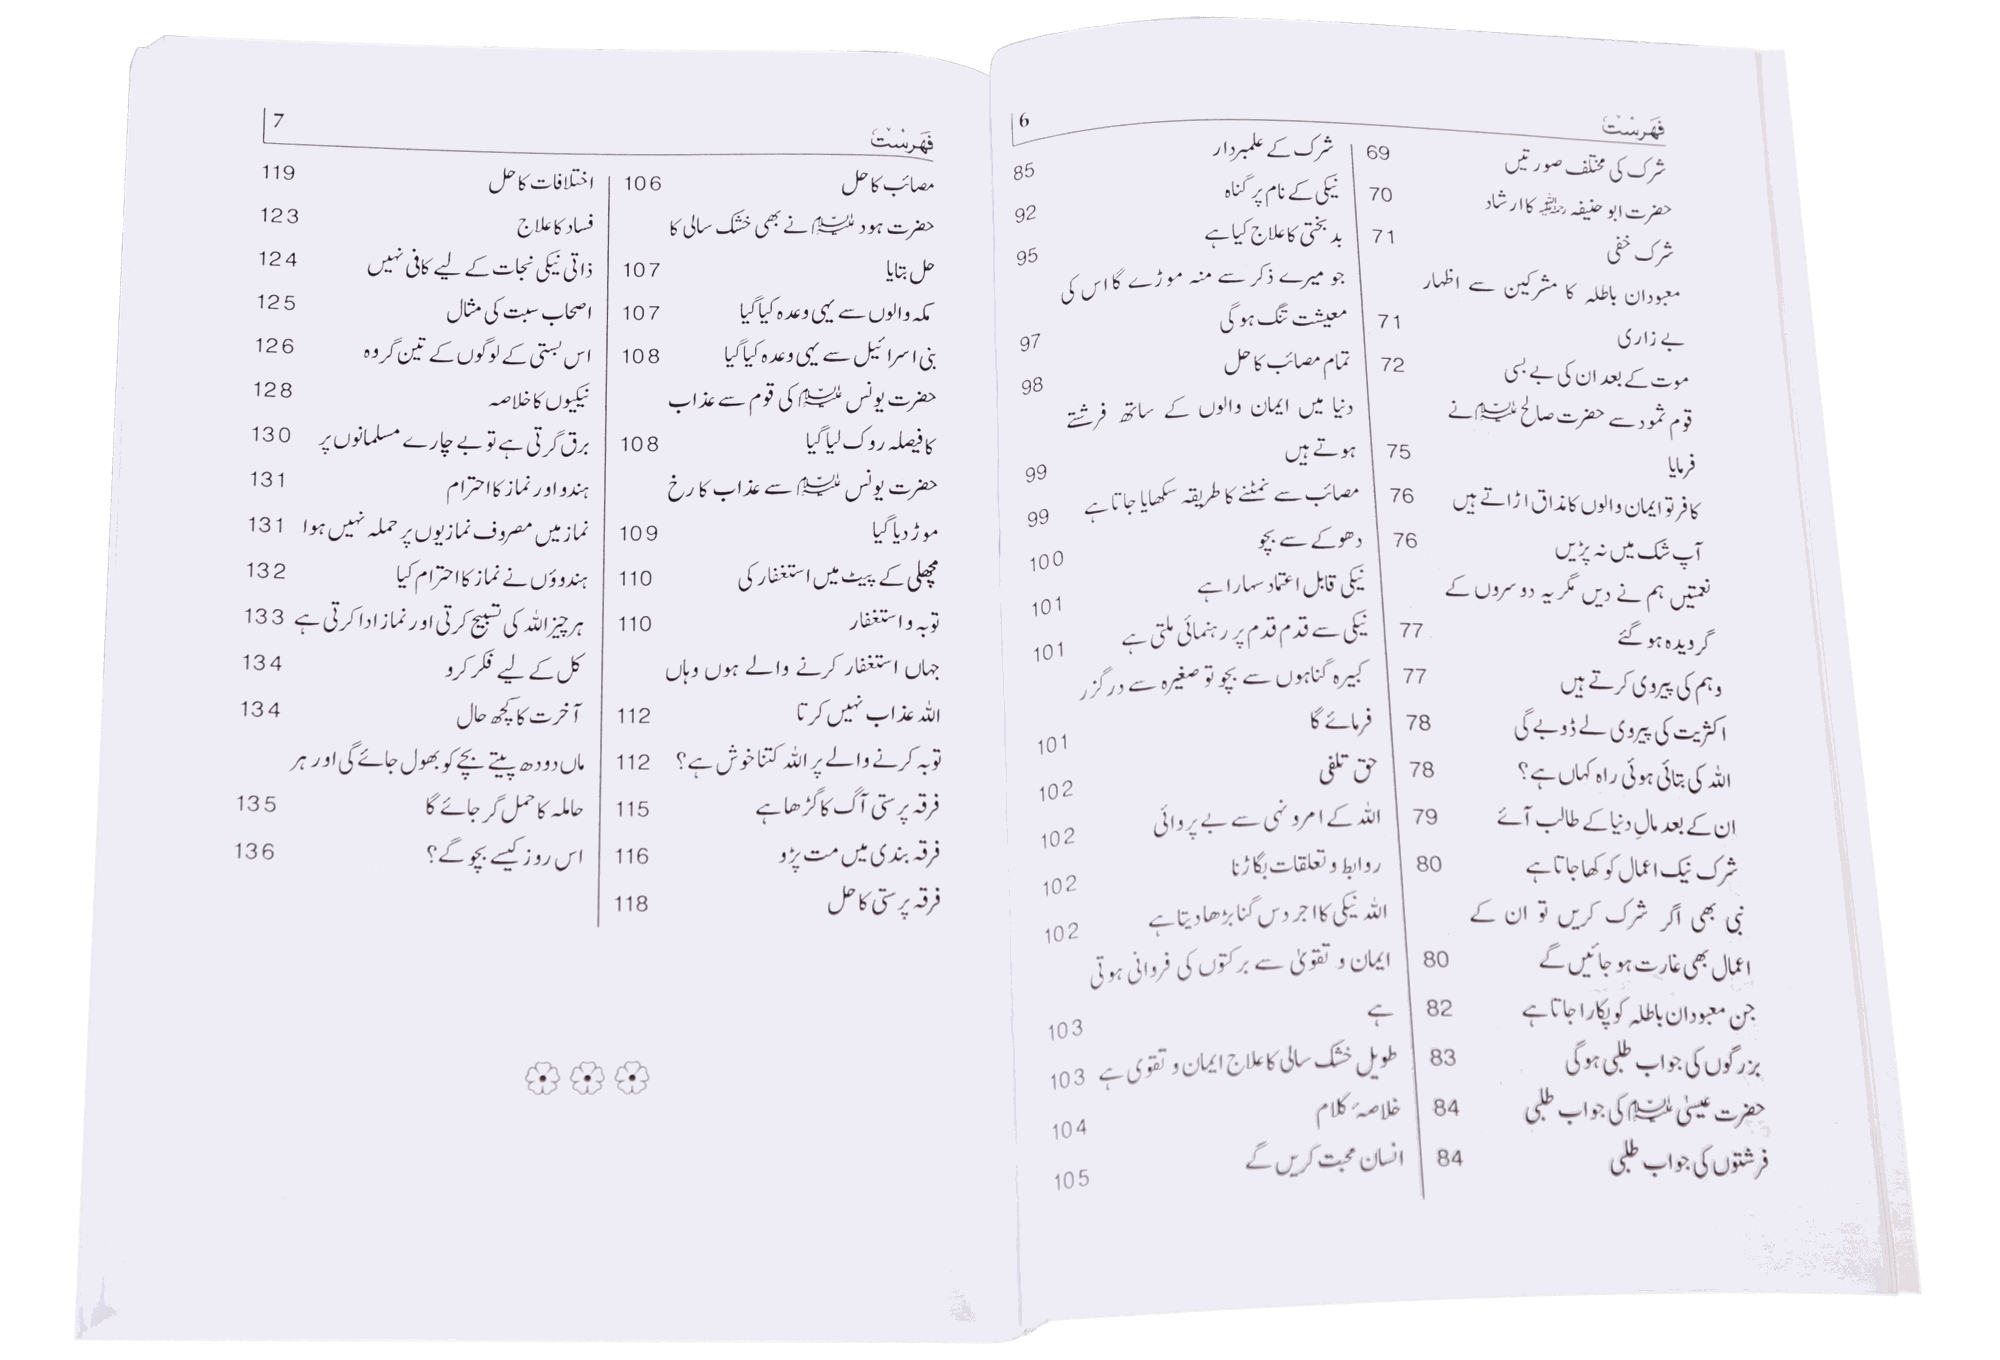 فہرست
6
شرک کی مختلف صورتیں 69
حضرت ابو حنیفہ رحمۃ اللہ علیہ کا ارشاد 70
شرک خفی 71
معبودان باطلہ کا مشرکین سے اظہار
بے زاری 71
موت کے بعد ان کی بے بسی 72
قوم ثمود سے حضرت صالح علیہ السلام نے
فرمایا 75
کافر تو ایمان والوں کا مذاق اڑاتے ہیں 76
آپ شک میں نہ پڑیں 76
نعمتیں ہم نے دیں مگر یہ دوسروں کے
گرویدہ ہو گئے 77
وہم کی پیروی کرتے ہیں 77
اکثریت کی پیروی لے ڈوبے گی 78
اللہ کی بتائی ہوئی راہ کہاں ہے؟ 78
ان کے بعد مالِ دنیا کے طالب آئے 79
شرک نیک اعمال کو کھا جاتا ہے 80
نبی بھی اگر شرک کریں تو ان کے
اعمال بھی غارت ہو جائیں گے 80
جن معبودان باطلہ کو پکارا جاتا ہے 82
بزرگوں کی جواب طلبی ہوگی 83
حضرت عیسیٰ علیہ السلام کی جواب طلبی 84
فرشتوں کی جواب طلبی 84
شرک کے علمبردار 85
نیکی کے نام پر گناہ 92
بد بختی کا علاج کیا ہے 95
جو میرے ذکر سے منہ موڑے گا اس کی
معیشت تنگ ہو گی 97
تمام مصائب کا حل 98
دنیا میں ایمان والوں کے ساتھ فرشتے
ہوتے ہیں 99
مصائب سے نمٹنے کا طریقہ سکھایا جاتا ہے 99
دھوکے سے بچو 100
نیکی قابل اعتماد سہارا ہے 101
نیکی سے قدم قدم پر رہنمائی ملتی ہے 101
کبیرہ گناہوں سے بچو تو صغیرہ سے درگزر
فرمائے گا 101
حق تلفی 102
اللہ کے امر و نہی سے بے پروائی 102
روابط و تعلقات بگاڑنا 102
اللہ نیکی کا اجر دس گنا بڑھا دیتا ہے 102
ایمان و تقویٰ سے برکتوں کی فروانی ہوتی
ہے 103
طویل خشک سالی کا علاج ایمان و تقوی ہے 103
خلاصۂ کلام 104
انسان محبت کریں گے 105
فہرست
7
مصائب کا حل 106
حضرت ہود علیہ السلام نے بھی خشک سالی کا
حل بتایا 107
مکہ والوں سے یہی وعدہ کیا گیا 107
بنی اسرائیل سے یہی وعدہ کیا گیا 108
حضرت یونس علیہ السلام کی قوم سے عذاب
کا فیصلہ روک لیا گیا 108
حضرت یونس علیہ السلام سے عذاب کا رخ
موڑ دیا گیا 109
مچھلی کے پیٹ میں استغفار کی 110
توبہ و استغفار 110
جہاں استغفار کرنے والے ہوں وہاں
اللہ عذاب نہیں کرتا 112
توبہ کرنے والے پر اللہ کتنا خوش ہے؟ 112
فرقہ پرستی آگ کا گڑھا ہے 115
فرقہ بندی میں مت پڑو 116
فرقہ پرستی کا حل 118
اختلافات کا حل 119
فساد کا علاج 123
ذاتی نیکی نجات کے لیے کافی نہیں 124
اصحاب سبت کی مثال 125
اس بستی کے لوگوں کے تین گروہ 126
نیکیوں کا خلاصہ 128
برق گرتی ہے تو بے چارے مسلمانوں پر 130
ہندو اور نماز کا احترام 131
نماز میں مصروف نمازیوں پر حملہ نہیں ہوا 131
ہندوؤں نے نماز کا احترام کیا 132
ہر چیز اللہ کی تسبیح کرتی اور نماز ادا کرتی ہے 133
کل کے لیے فکر کرو 134
آخرت کا کچھ حال 134
ماں دودھ پیتے بچے کو بھول جائے گی اور ہر
حاملہ کا حمل گر جائے گا 135
اس روز کیسے بچو گے؟ 136